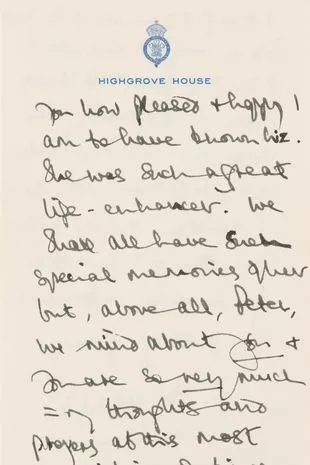 HIGHGROVE HOUSE
you how pleased & happy I
am to have known Liz.
She was such a great
life-enhancer. We
shall all have such
special memories of her
but, above all, Peter,
we mind about you &
you are so very much
in my thoughts and
prayers at this most